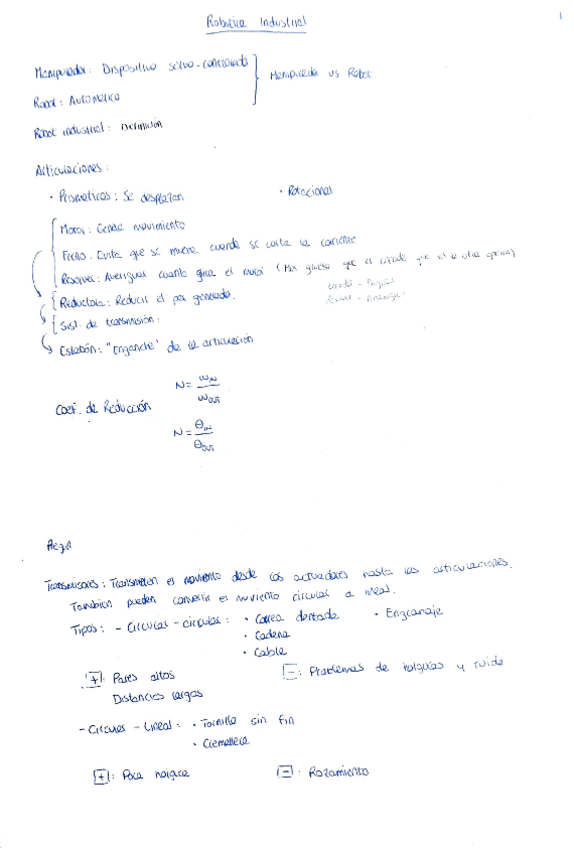 Robótica Industrial
1
Manipulador: Dispositivo servo-controlado
Manipulador vs Robot
Robot: Automático
Robot industrial: Definición
Articulaciones:
• Prismáticas: Se desplazan • Rotacional
Motor: Genera movimiento
Freno: Evita que se mueva cuando se corta la corriente
Resolver: Averiguar cuanto gira el motor (Mas grueso que el encoder que es la otra opcion)
Encoder - Digital
Analógico
Reductora: Reducir el par generado.
Sist. de transmisión:
Eslabón: "Enganche" de la articulación
Coef. de Reducción
N = ω_IN / ω_OUT
N = θ_IN / θ_OUT
Transmisores: Transmiten el moviento desde los actuadores hasta las articulaciones.
Tambien pueden convertir el moviento circular a lineal.
Tipos: - Circular - circular: • Correa dentada • Engranaje
• Cadena
• Cable
[+]: Pares altos [-]: Problemas de holguras y ruido
Distancias largas
- Circular - Lineal: • Tornillo sin fin
• Cremallera
[+]: Poca holgura [-]: Rozamiento